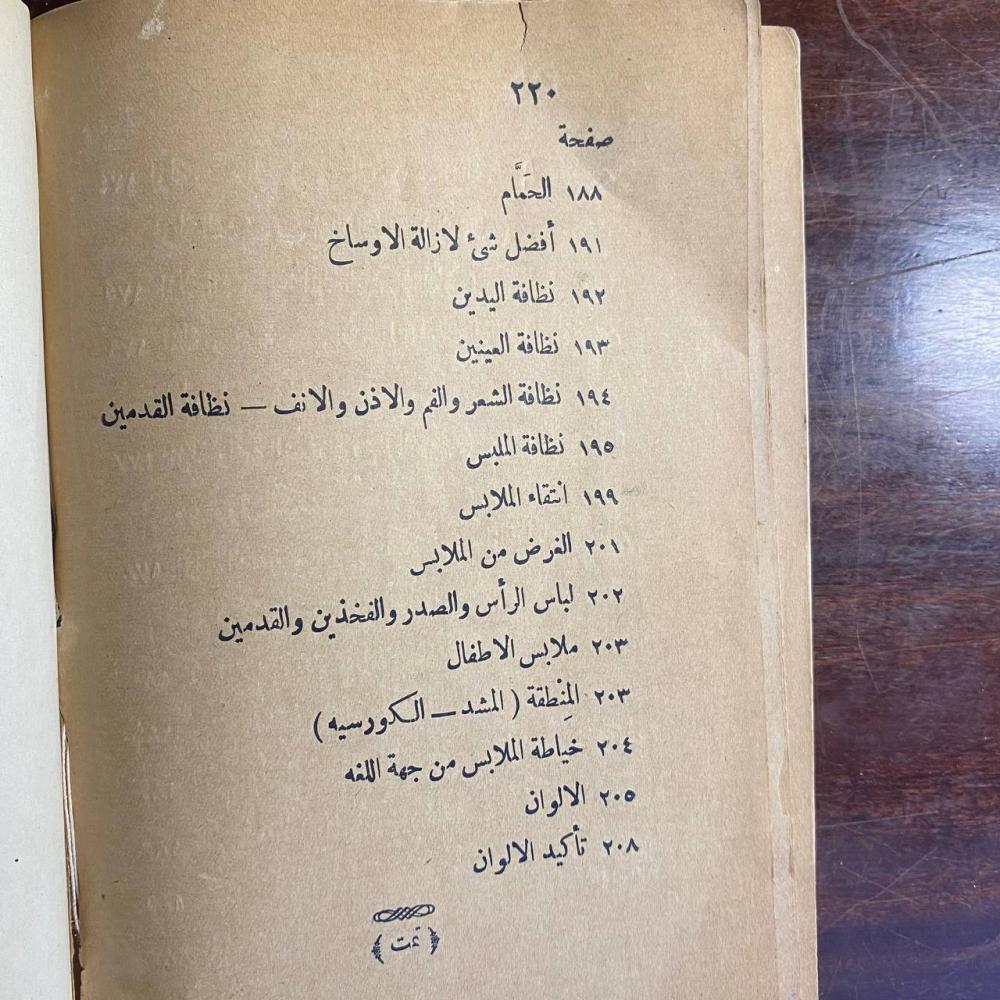 ٢٢٠
صفحة
١٨٨ الحَمَّام
١٩١ أفضل شئ لازالة الاوساخ
١٩٢ نظافة اليدين
١٩٣ نظافة العينين
١٩٤ نظافة الشعر والفم والاذن والانف — نظافة القدمين
١٩٥ نظافة الملبس
١٩٩ انتقاء الملابس
٢٠١ الغرض من الملابس
٢٠٢ لباس الرأس والصدر والفخذين والقدمين
٢٠٣ ملابس الاطفال
٢٠٣ المِنْطقة ( المشد — الكورسيه )
٢٠٤ خياطة الملابس من جهة اللغه
٢٠٥ الالوان
٢٠٨ تأكيد الالوان
تمت